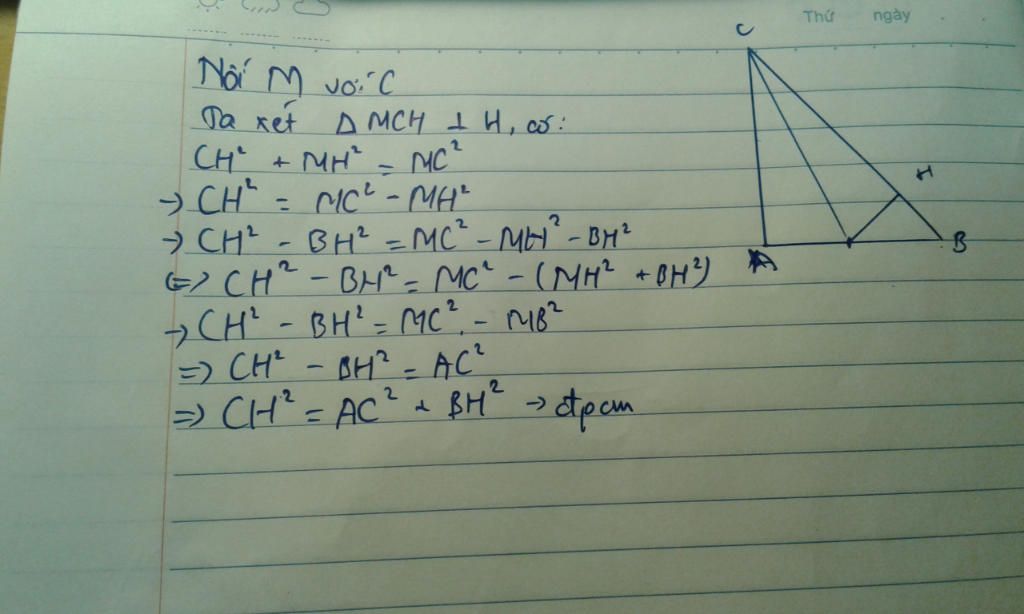 Thứ ngày
Nối M với C
Ta xét Δ MCH ⊥ H, có:
CH² + MH² = MC²
→ CH² = MC² - MH²
→ CH² - BH² = MC² - MH² - BH²
(=) CH² - BH² = MC² - (MH² + BH²)
→ CH² - BH² = MC² - MB²
=> CH² - BH² = AC²
=> CH² = AC² + BH² → đpcm
C
H
A
B